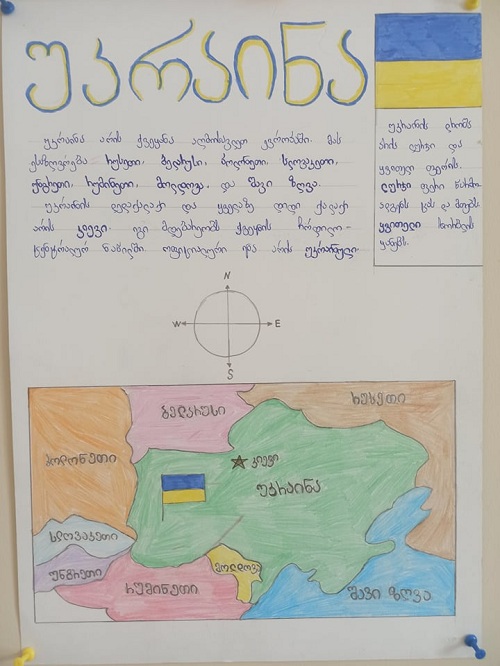 უკრაინა
უკრაინა არის ქვეყანა აღმოსავლეთ ევროპაში. მას
ესაზღვრება რუსეთი, ბელარუსი, პოლონეთი, სლოვაკეთი,
უნგრეთი, რუმინეთი, მოლდოვა და შავი ზღვა.
უკრაინის დედაქალაქი და ყველაზე დიდი ქალაქი
არის კიევი. იგი მდებარეობს ქვეყნის ჩრდილო-
ცენტრალურ ნაწილში. ოფიციალური ენა არის უკრაინული.
უკრაინის დროშა
არის ლურჯი და
ყვითელი ფერის.
ლურჯი ფერი
ცას და
ყვითელი ხორბლის
ყანებს.
N
W E
S
ბელარუსი
რუსეთი
პოლონეთი
კიევი
უკრაინა
სლოვაკეთი
უნგრეთი
მოლდოვა
რუმინეთი
შავი ზღვა